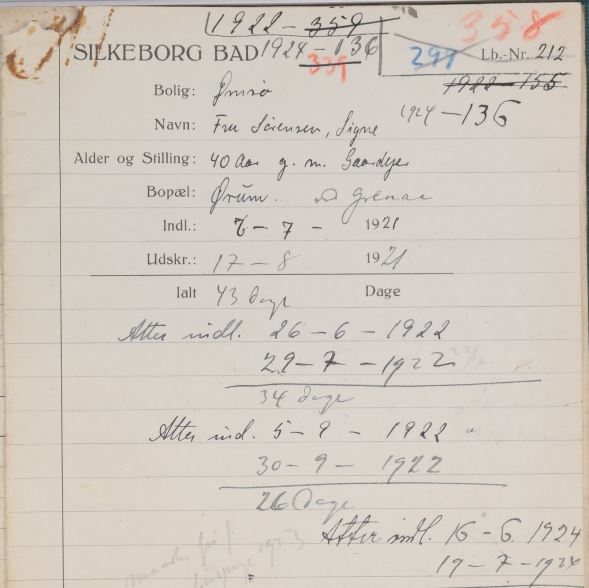 1922 - 359
358
SILKEBORG BAD 1924 - 136
339
291
Lb.-Nr. 212
1922 - 155
Bolig: Ømsø
1924 - 136
Navn: Fru Sørensen, Signe
Alder og Stilling: 40 Aar g. m. Gaardejer
Bopæl: Ørum. ved Grenaa
Indl.: 6 - 7 - 1921
Udskr.: 17 - 8 1921
Ialt 43 dage Dage
Atter indl. 26 - 6 - 1922
29 - 7 - 1922
34 dage
Atter ind. 5 - 9 - 1922
30 - 9 - 1922
26 Dage
Atter indl. 16 - 6 1924
19 - 7 - 1924
1923